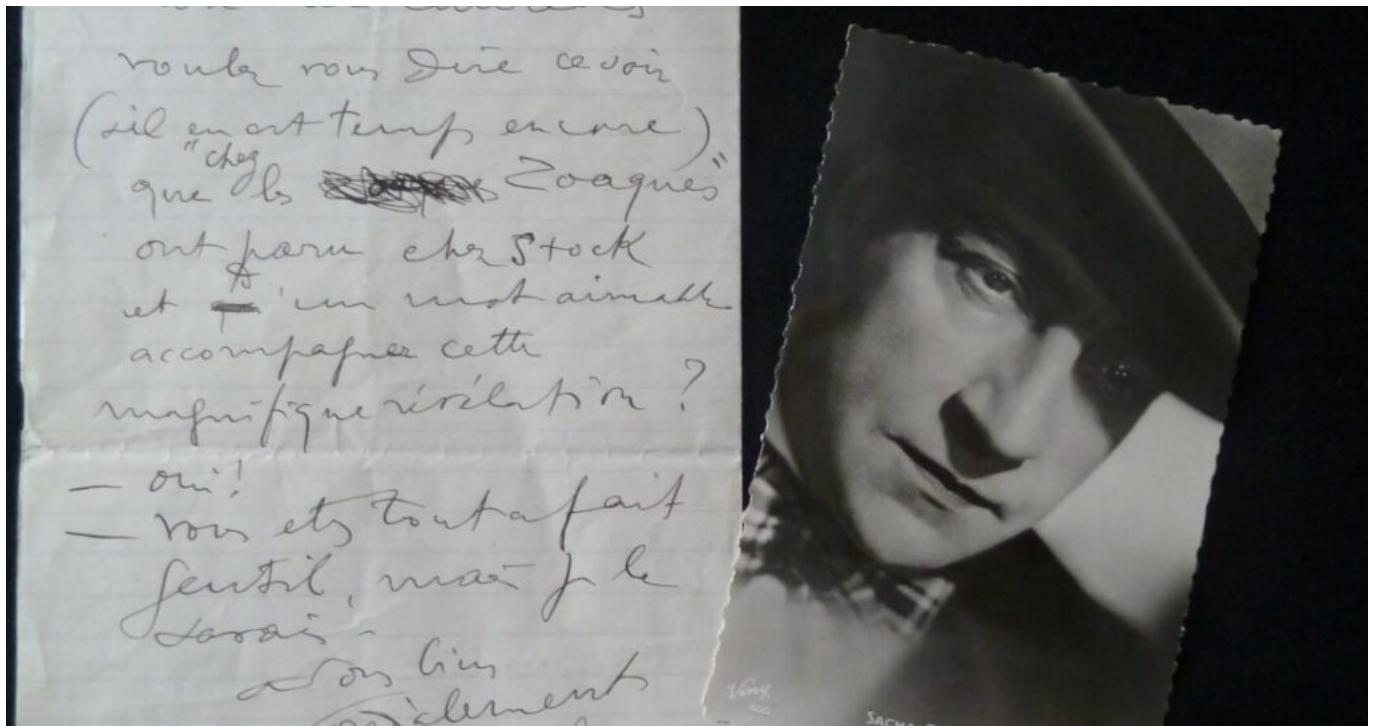 voulez vous dire ce soir
(s'il en est temps encore)
que "chez les Zoaques"
ont paru chez Stock
et d'un mot aimable
accompagner cette
magnifique révélation ?
— oui !
— vous etes tout a fait
gentil, mais je le
savais -
Vous bien
cordialement
Viny
SACHA